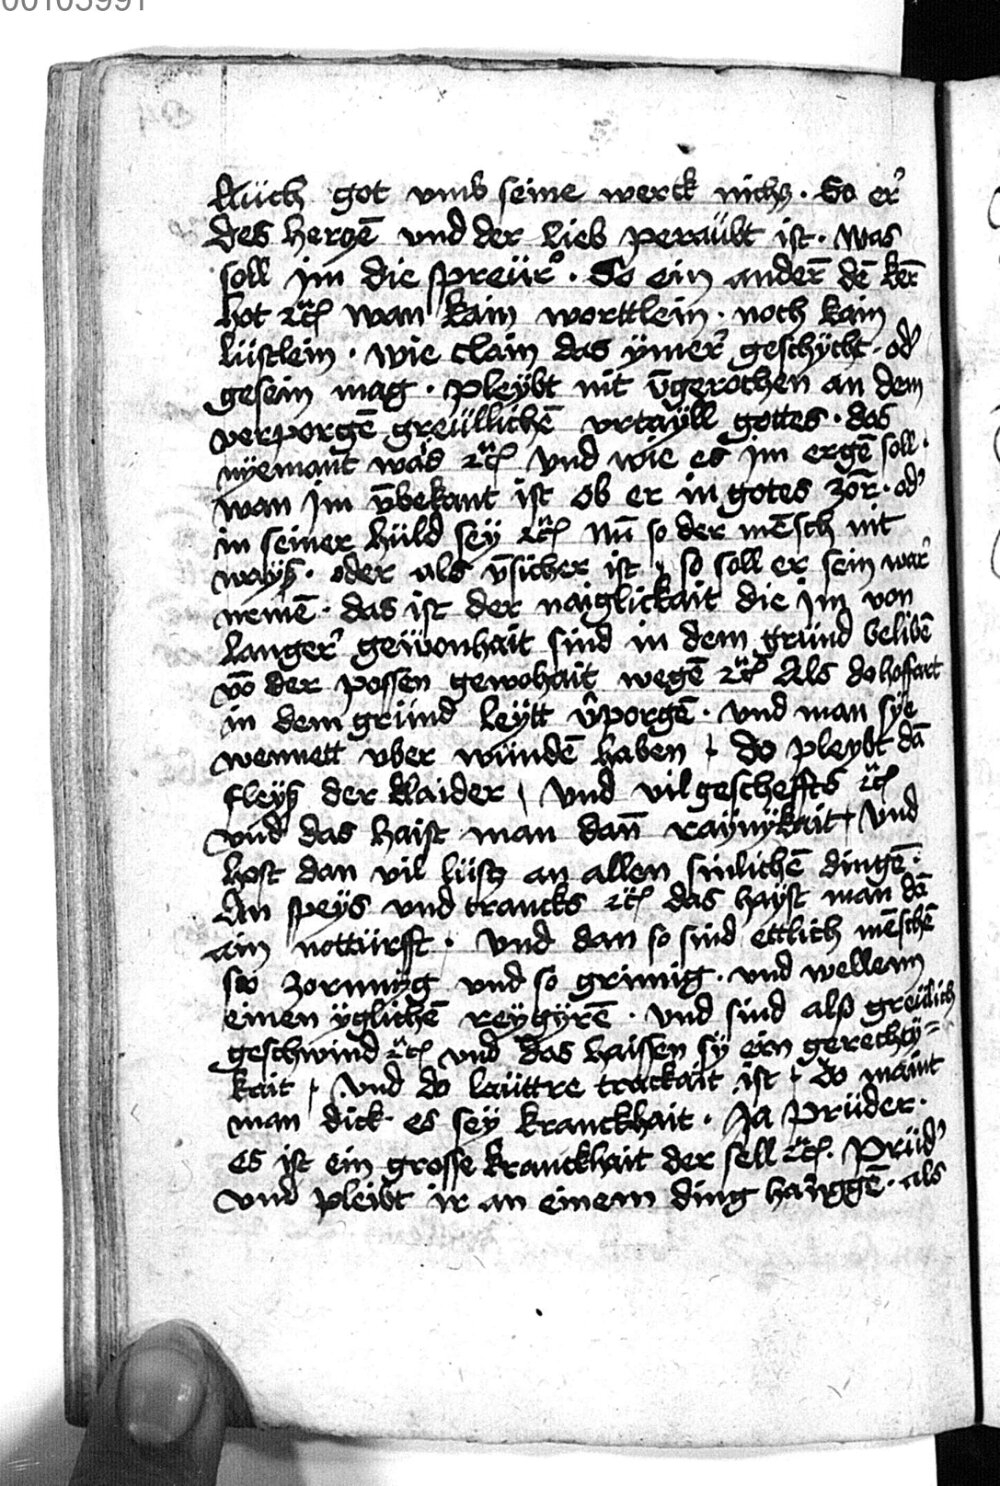 00103991
Auch got vmb seine werck nichtz · So er
des hertzē vnd der lieb peraübt ist · Was
soll jm die spreür · So ein ander dē kerē
hot ꝛc̈ wan kain worttlein · noch kain
lüstlein · wie clain das ÿmer geschÿcht · od'
gesein mag · pleÿbt nit v̄gerochen an dem
verporgē greüllichē vrtaÿll gottes · das
nÿemant wais ꝛc̈ Vnd wie es jm ergē soll ·
wan jm v̄bekant ist ob er in gotes zor̄ · od'
in seiner hüld seÿ ꝛc̈ Nū so der mēsch nit
waÿß · oder als v̄sicher ist · so soll er sein war
nemē · das ist der naiglickait die jm von
langer gewonhait sind in dem gründ belibē
vō der possen gewohait wegē ꝛc̈ Als do hoffart
in dem gründ leÿtt v̂porgē · vnd man sÿe
wennett vber wündē haben · do pleÿbt dā
fleÿß der klaider · Vnd vil gescheffts ꝛc̈
vnd das haist man dan̄ raÿnÿkait · Vnd
host dan vil lüstz an allen sinlichē dingē ·
An speÿs vnd trancks ꝛc̈ das haÿst man dā
ain nottürfft · Vnd dan so sind ettlich mēschē
so zornnÿg vnd so grimig · vnd wellenn
einen ÿglichē reÿgÿrē · vnd sind alß greülich
geschwind ꝛc̈ vnd das haissen sÿ ein gerechtÿ=
kait · Vnd do laüttre trackait ist · do maint
man dick es seÿ kranckhait · Ja Prüder ·
es ist ein grosse kranckhait der sell ꝛc̈ · Prüd'
vnd pleibt ir an einem ding hanggē · als